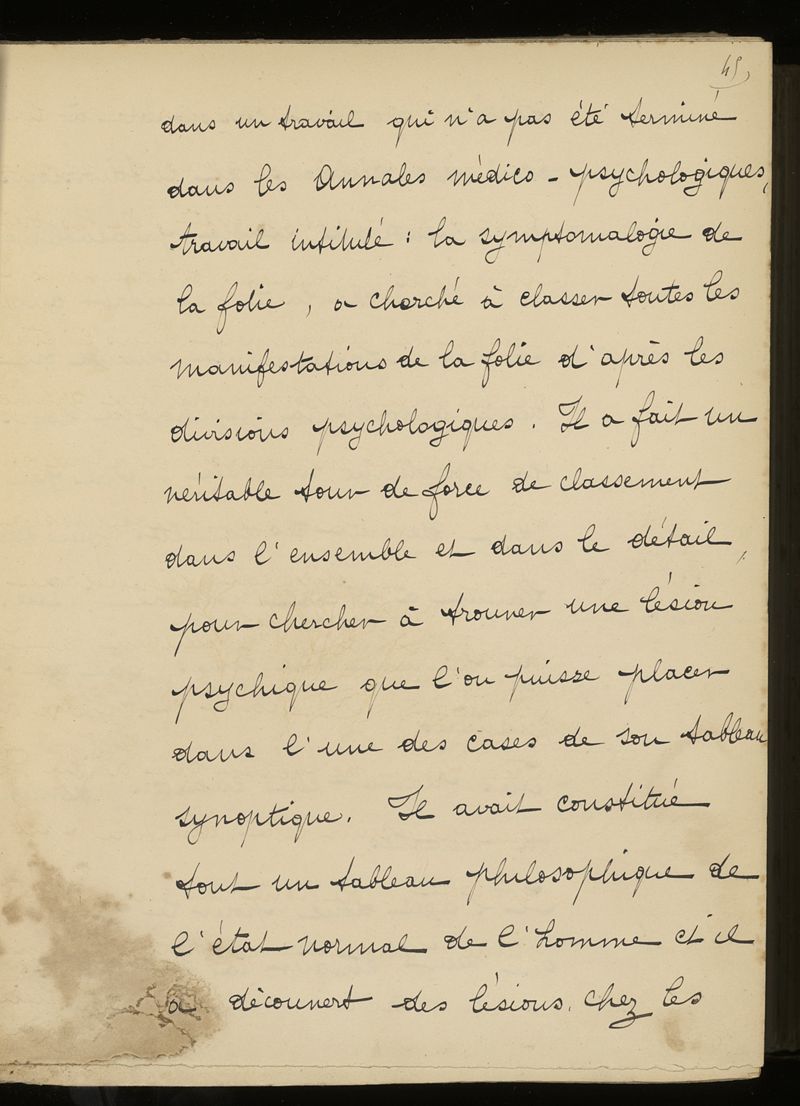 45
dans un travail qui n'a pas été terminé
dans les Annales médico - psychologiques,
travail intitulé : la symptomalogie de
la folie , a cherché à classer toutes les
manifestations de la folie d'après les
divisions psychologiques . Il a fait un
véritable tour de force de classement
dans l'ensemble et dans le détail,
pour chercher à trouver une lésion
psychique que l'on puisse placer
dans l'une des cases de son tableau
synoptique. Il avait constitué
tout un tableau philosophique de
l'état normal de l'homme et il
a découvert des lésions chez les